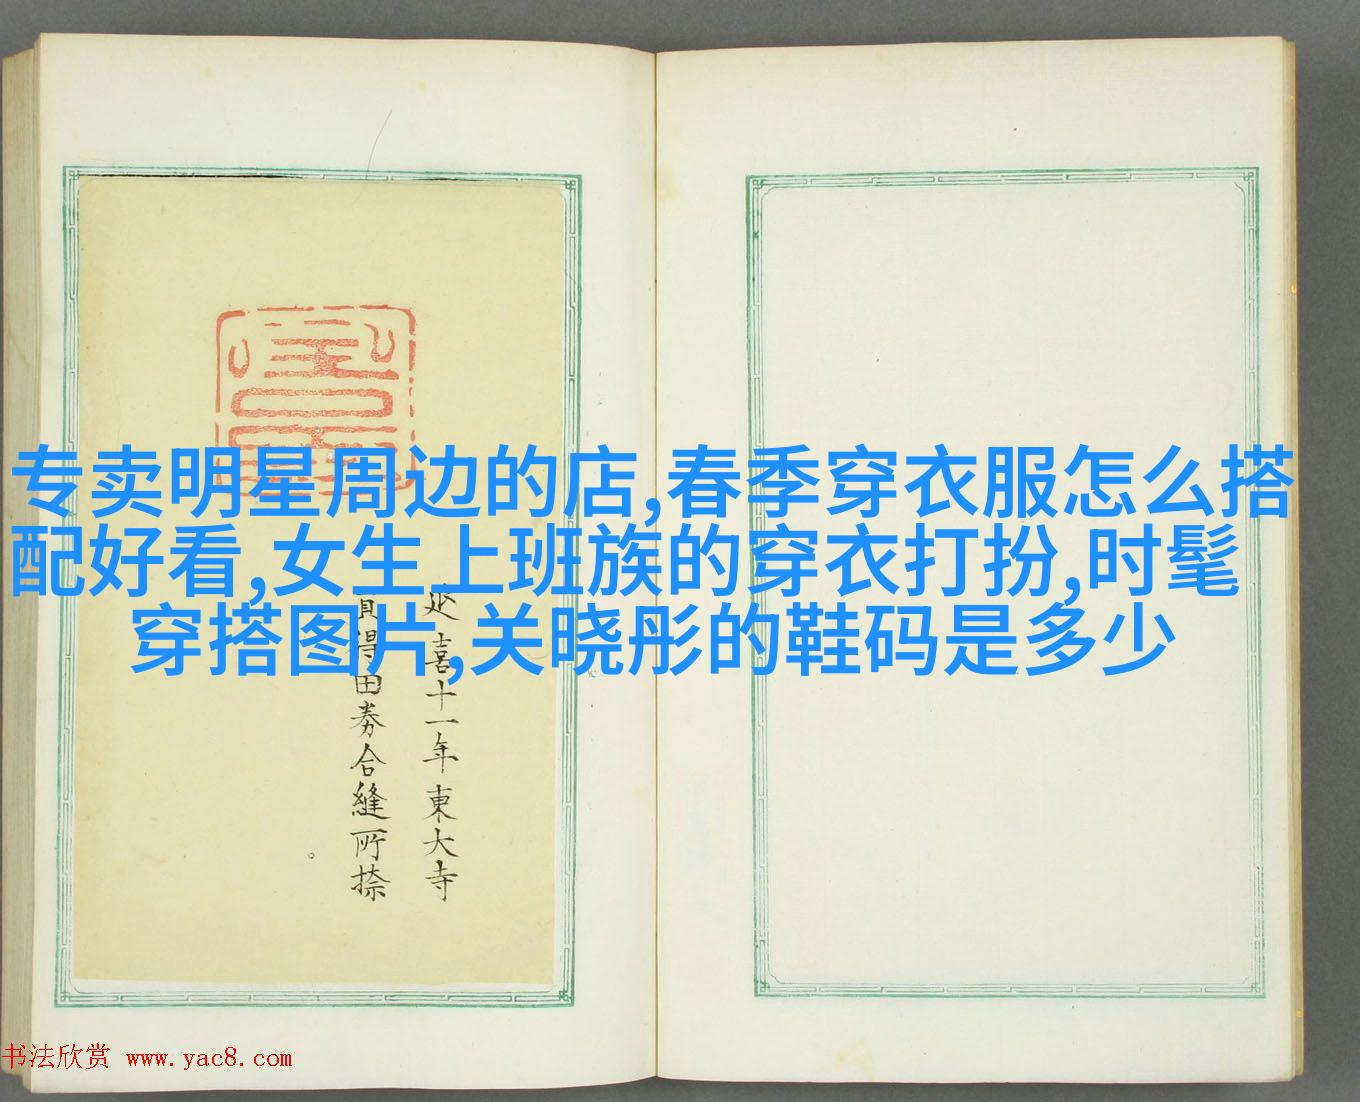 专卖明星周边的店,春季穿衣服怎么搭
配好看,女生上班族的穿衣打扮,时髦
穿搭图片,关晓彤的鞋码是多少
延喜十一年東大寺
得田券合縫所捺
书法欣赏 www.yac8.com